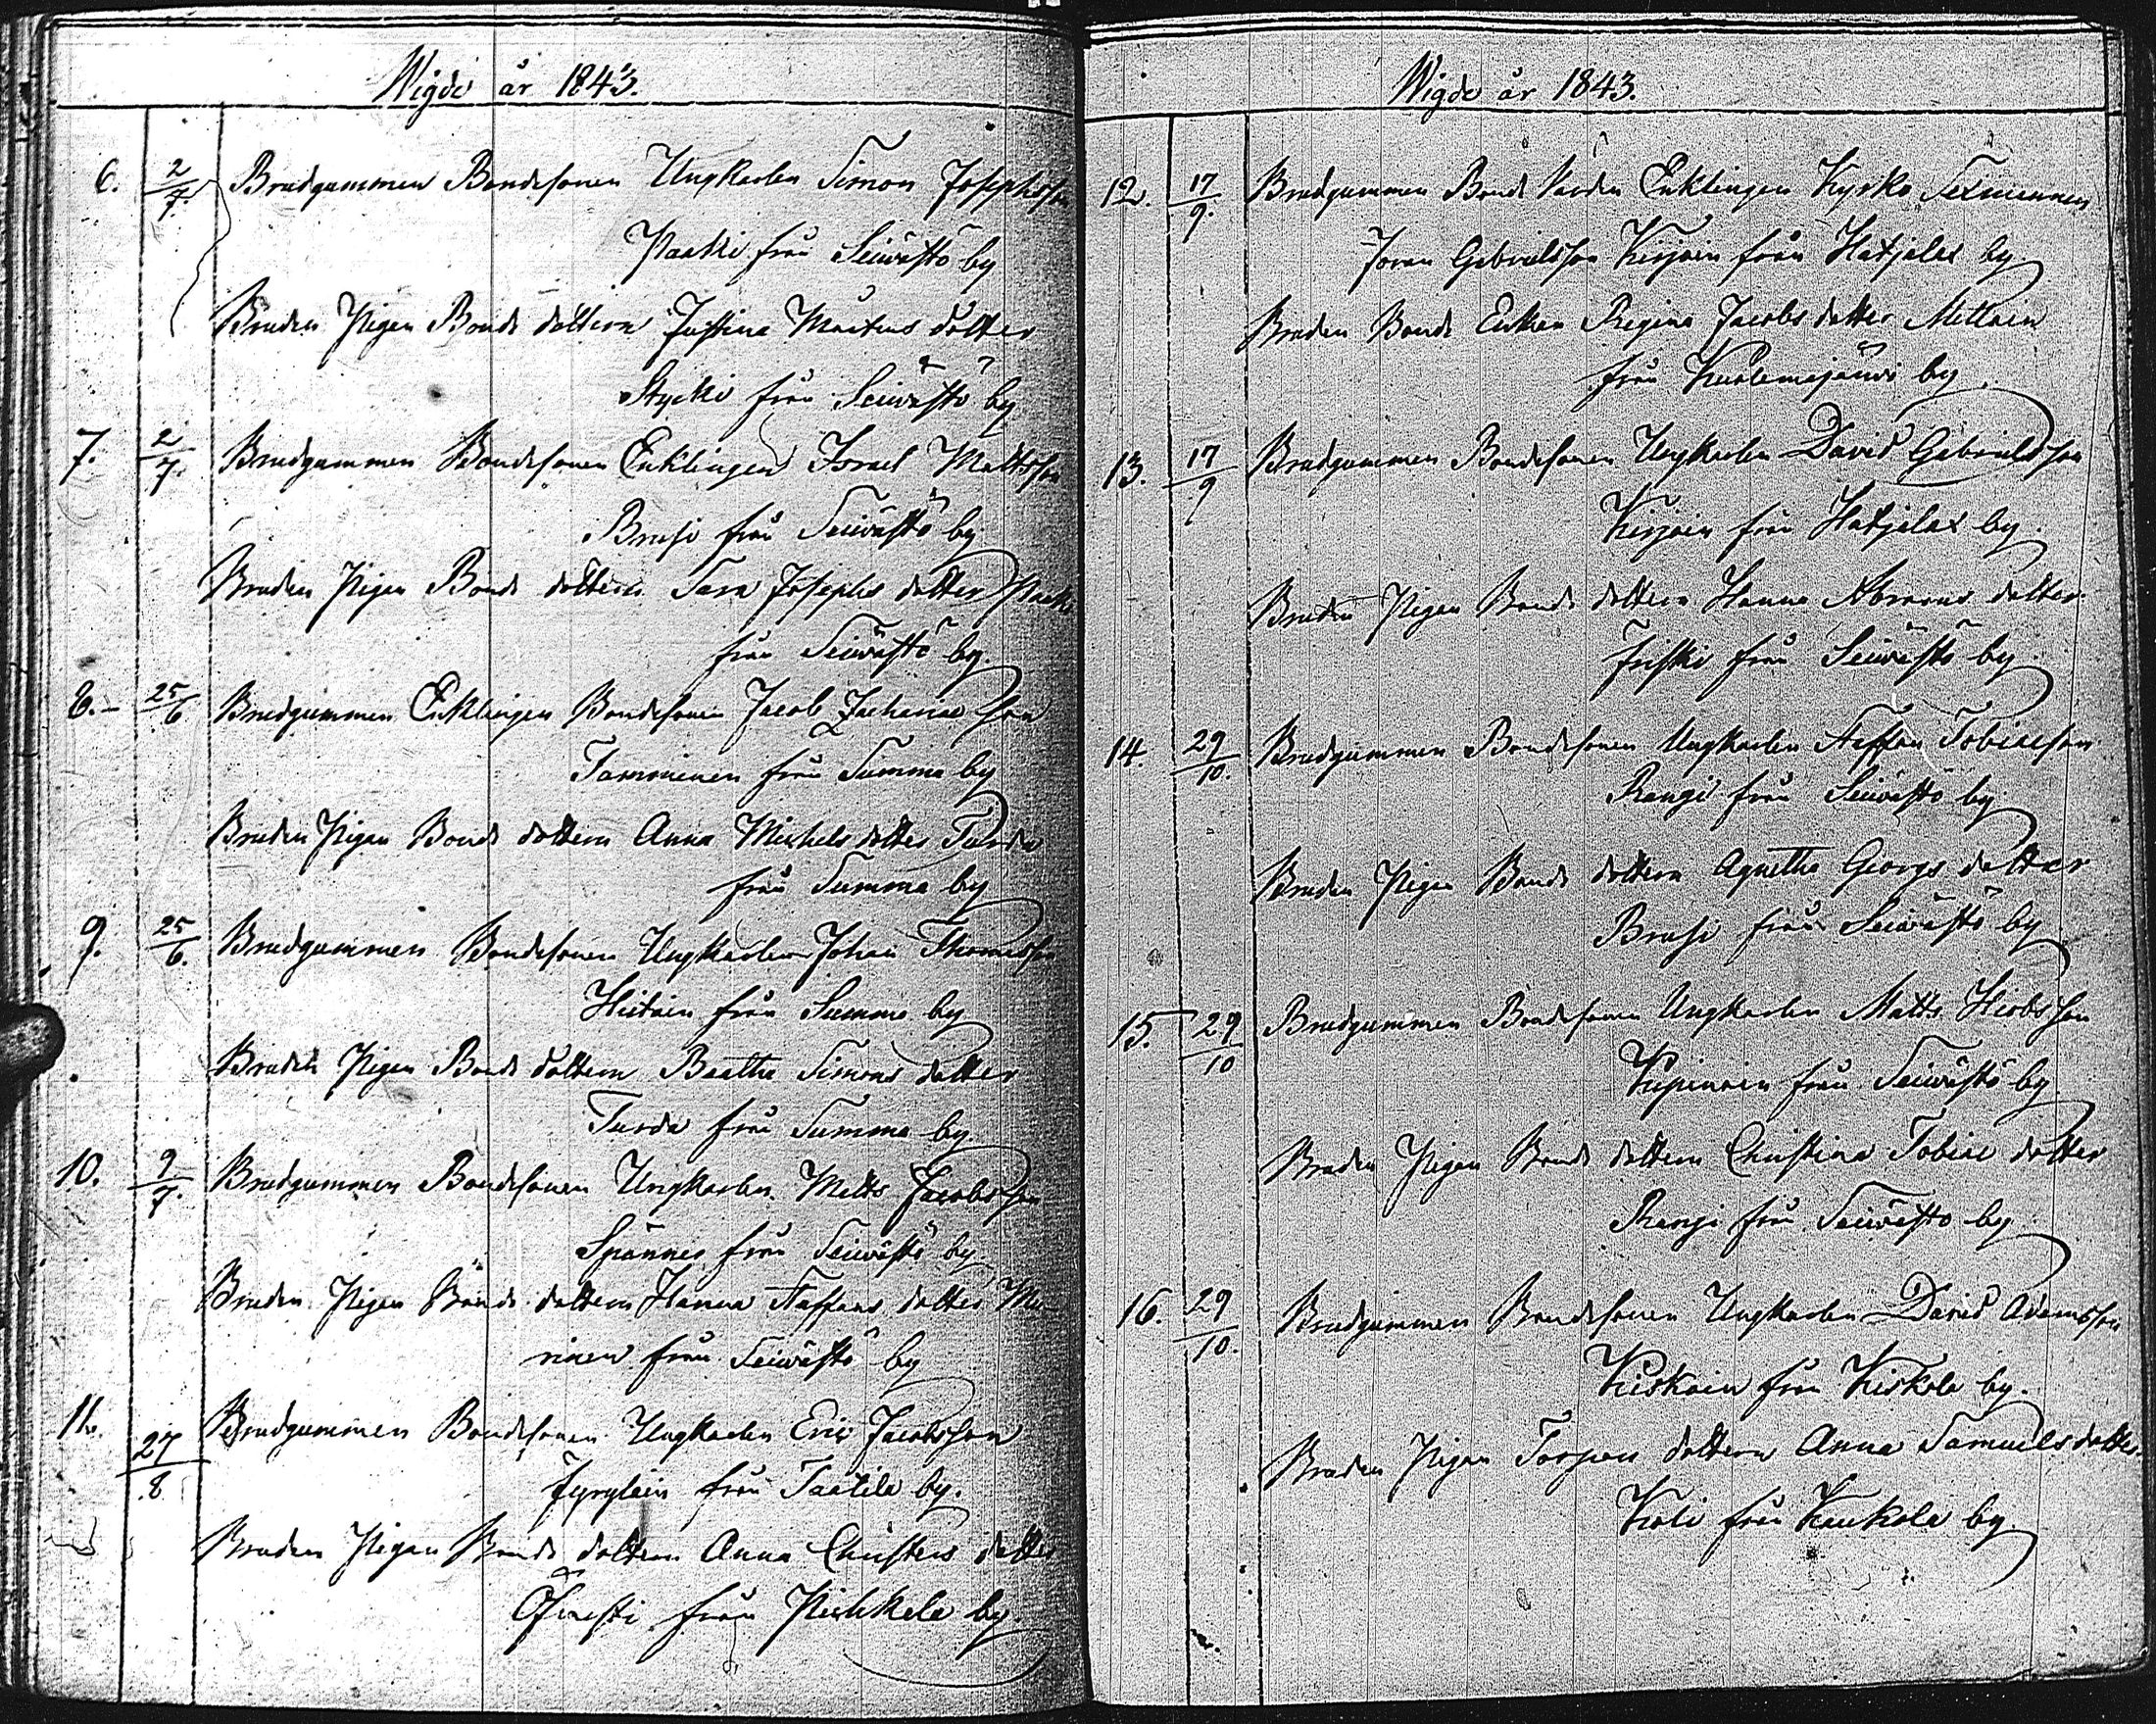 Wigde år 1843.
6. 2/7. Brudgummen Bondesonen Ungkarlen Simon Josephsson
Paakki från Seiwästö by
Bruden Pigan Bonde dottern Justina Martins dotter
Stycki från Seiwästö by
7. 2/7. Brudgummen Bondesonen Enklingen Israel Mattsson
Brusi från Seiwästö by
Bruden Pigan Bonde dottern Sara Josephs dotter Paaki
från Seiwästö by.
8. 25/6 Brudgummen Enklingen Bondesonen Jacob Zachariae son
Tamminen från Summa by
Bruden Pigan Bonde dottern Anna Michels dotter Turda
från Summa by
9. 25/6. Brudgummen Bondesonen Ungkarlen Johan Thomasson
Hietain från Summa by
Bruden Pigan Bonde dottern Beatha Simons dotter
Turda från Summa by
10. 9/7. Brudgummen Bondesonen Ungkarlen Matts Jacobsson
Spännes från Seiwästö by.
Bruden Pigan Bonde dottern Hanna Staffans dotter Mu-
rinen från Seiwästö by
11. 27/8 Brudgummen Bondesonen Ungkarlen Eric Jacobsson
Jyryläin från Taatila by.
Bruden Pigan Bonde dottern Anna Christers dotter
från by.
Wigde år 1843.
12. 17/9. Brudgummen Bonde Enklingen Kyrko Sexmannen
Joran Gabrielsson Kirjain från Hatjalax by.
Bruden Bonde Enkan Regina Jacobs dotter Mettäin
från Kuolemajärwi by.
13. 17/9 Brudgummen Bondesonen Ungkarlen David Gabrielsson
Kirjain från Hatjalax by.
Bruden Pigan Bonde dottern Hanna Abrams dotter
Friski från Seiwästö by
14. 29/10. Brudgummen Bondesonen Ungkarlen Staffan Tobiaeson
Rangi från Seiwästö by.
Bruden Pigan Bonde dottern Agnetha Georgs dotter
Brusi från Seiwästö by
15. 29/10 Brudgummen Bondesonen Ungkarlen Matts Hiobsson
Kupiain från Seiwästö by
Bruden Pigan Bonde dottern Christina Tobiae dotter
Rangi från Seiwästö by
16. 29/10. Brudgummen Bondesonen Ungkarlen David Adamsson
Kiskoin från Kiskola by.
Bruden Pigan Torpare dottern Anna Samuels dotter
Koli från Kaukola by